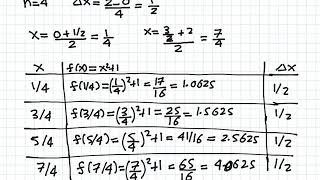 n=4 Δx = 2-0/4 = 1/2
x = 0+1/2 / 2 = 1/4 x = 3/2+2 / 2 = 7/4
x f(x)=x²+1 Δx
1/4 f(1/4)=(1/4)²+1=17/16=1.0625 1/2
3/4 f(3/4)=(3/4)²+1=25/16=1.5625 1/2
5/4 f(5/4)=(5/4)²+1=41/16=2.5625 1/2
7/4 f(7/4)=(7/4)²+1=65/16=4.0625 1/2